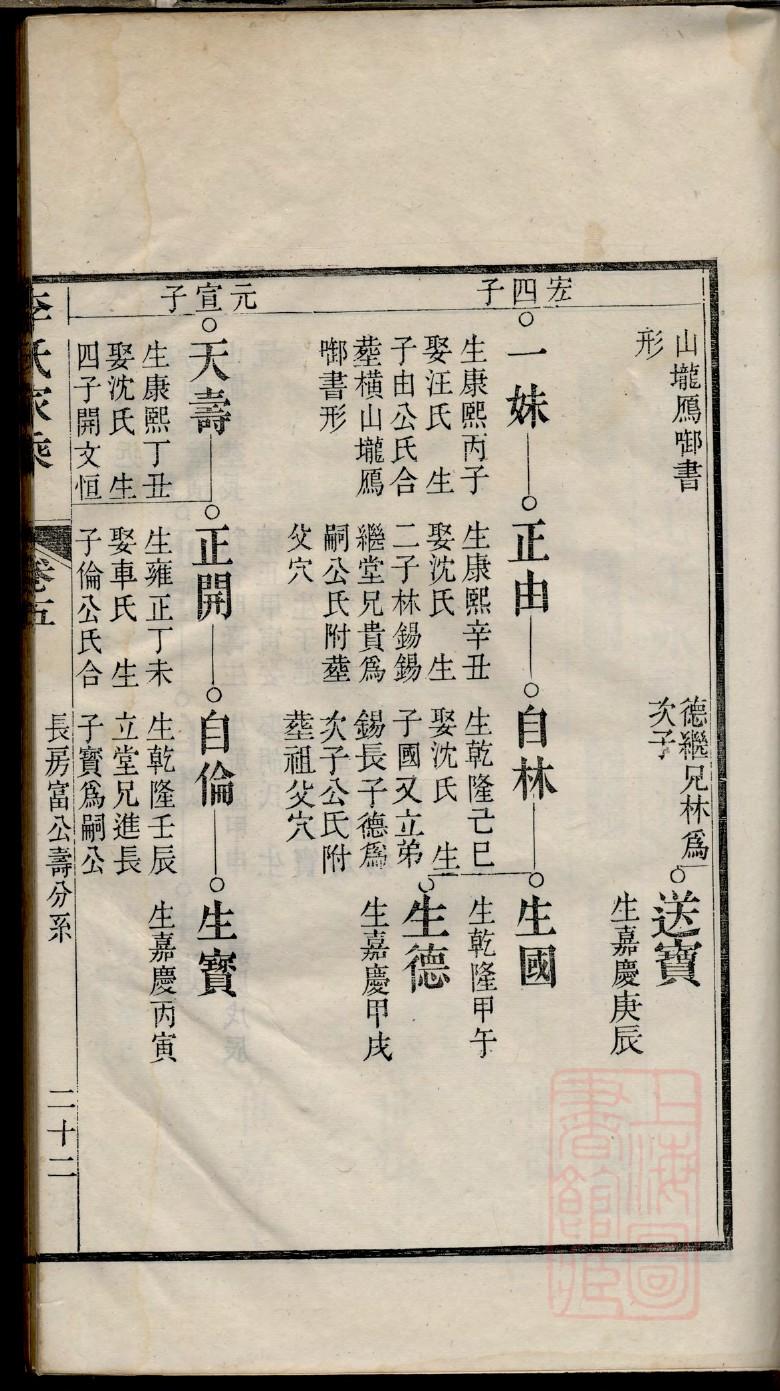 山壠鴈啣書
形
德繼兄林爲
次子
送寶
生嘉慶庚辰
宏四子
一妹
生康熙丙子
娶汪氏 生
子由公氏合
塟橫山壠鴈
啣書形
正由
生康熙辛丑
娶沈氏 生
二子林錫錫
繼堂兄貴爲
嗣公氏附塟
父穴
自林
生乾隆己巳
娶沈氏 生
子國又立弟
錫長子德爲
次子公氏附
塟祖父穴
生國
生乾隆甲午
生德
生嘉慶甲戌
元宣子
天壽
生康熙丁丑
娶沈氏 生
四子開文恒
正開
生雍正丁未
娶車氏 生
子倫公氏合
自倫
生乾隆壬辰
立堂兄進長
子寶爲嗣公
生寶
生嘉慶丙寅
李氏家乘
卷五
長房富公壽分系
二十二
上海圖
書館藏